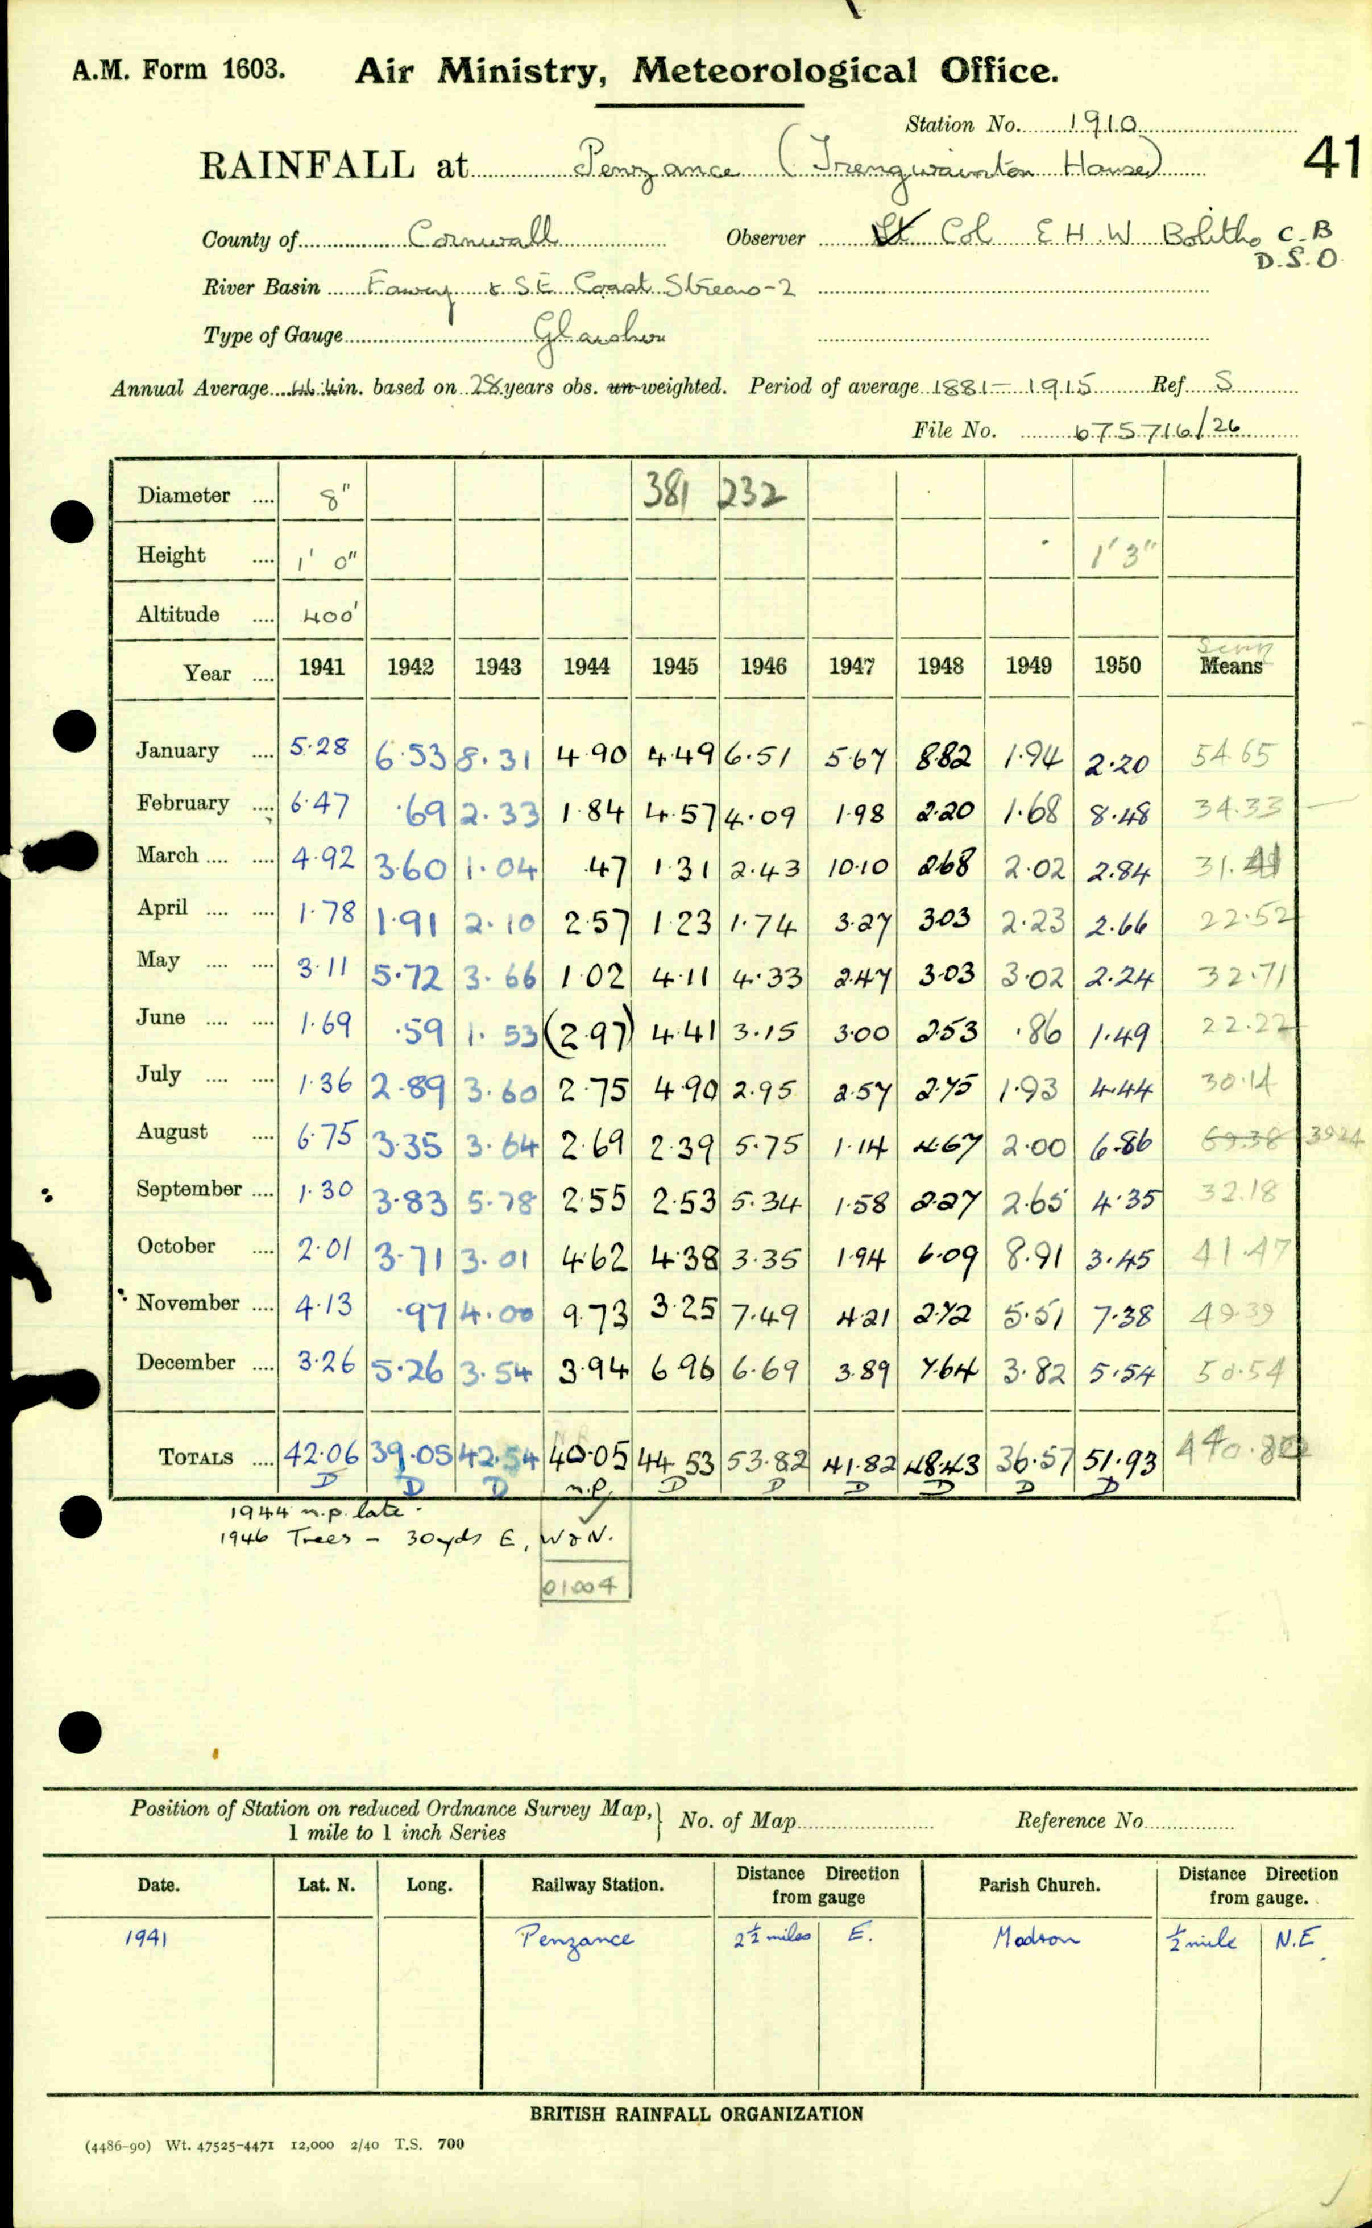 A.M. Form 1603. Air Ministry, Meteorological Office.
Station No. 1910
RAINFALL at Penzance (Trengwainton House) 41
County of Cornwall Observer Lt Col E H. W Bolitho C.B
D.S.O
River Basin Fowey & SE Coast Streams-2
Type of Gauge Glaisher
Annual Average in. based on 28 years obs. un-weighted. Period of average 1881-1915 Ref. S
File No. 675716/26
Diameter .... 8" 381 232
Height .... 1' 0" 1' 3"
Altitude .... 400'
Year .... 1941 1942 1943 1944 1945 1946 1947 1948 1949 1950 Means
January .... 5.28 6.53 8.31 4.90 4.49 6.51 5.67 8.82 1.94 2.20 54.65
February .... 6.47 .69 2.33 1.84 4.57 4.09 1.98 2.20 1.68 8.48 34.33
March .... .... 4.92 3.60 1.04 .47 1.31 2.43 10.10 2.68 2.02 2.84 31.41
April .... .... 1.78 1.91 2.10 2.57 1.23 1.74 3.27 3.03 2.23 2.66 22.52
May .... .... 3.11 5.72 3.66 1.02 4.11 4.33 2.47 3.03 3.02 2.24 32.71
June .... .... 1.69 .59 1.53 (2.97) 4.41 3.15 3.00 2.53 .86 1.49 22.22
July .... .... 1.36 2.89 3.60 2.75 4.90 2.95 2.57 2.75 1.93 4.44 30.14
August .... 6.75 3.35 3.64 2.69 2.39 5.75 1.14 4.67 2.00 6.86 69.38 39.24
September .... 1.30 3.83 5.78 2.55 2.53 5.34 1.58 2.27 2.65 4.35 32.18
October .... 2.01 3.71 3.01 4.62 4.38 3.35 1.94 6.09 8.91 3.45 41.47
November .... 4.13 .97 4.00 9.73 3.25 7.49 4.21 2.72 5.51 7.38 49.39
December .... 3.26 5.26 3.54 3.94 6.96 6.69 3.89 7.64 3.82 5.54 50.54
TOTALS .... 42.06 39.05 42.54 40.05 44.53 53.82 41.82 48.43 36.57 51.93 440.80
D D D n.p. D D D D D D
1944 n.p. late.
1946 Trees - 30yds E, W & N.
01004
Position of Station on reduced Ordnance Survey Map, } No. of Map Reference No
1 mile to 1 inch Series
Date. Lat. N. Long. Railway Station. Distance Direction from gauge Parish Church. Distance Direction from gauge.
1941 Penzance 2½ miles E. Madron ½ mile N.E.
BRITISH RAINFALL ORGANIZATION
(4486-90) Wt. 47525-4471 12,000 2/40 T.S. 700